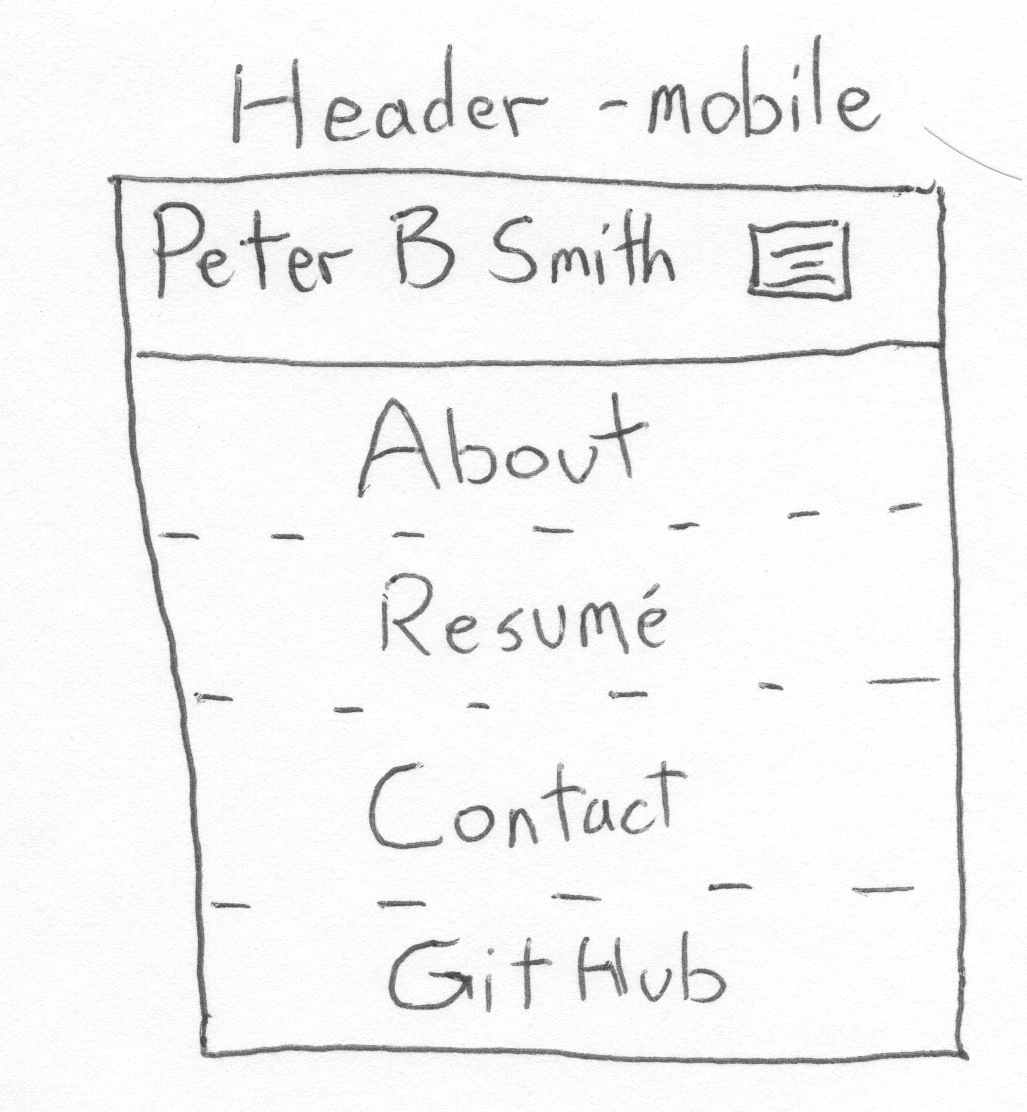 Header - mobile
Peter B Smith
About
Resumé
Contact
GitHub